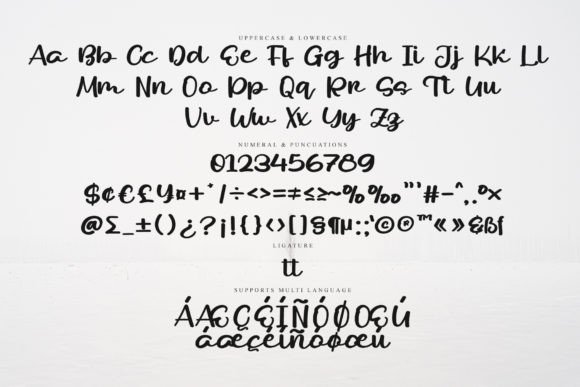 UPPERCASE & LOWERCASE
Aa Bb Cc Dd Ee Ff Gg Hh Ii Jj Kk Ll
Mm Nn Oo Pp Qq Rr Ss Tt Uu
Vv Ww Xx Yy Zz
NUMERAL & PUNCUATIONS
0123456789
$¢€£¥¤+*/÷<>=≠≤≥~%‰"'#-^,.ºx
@Σ_±()¿?¡!{}‹›[]§¶µ:;'©®™«»&ßſ
LIGATURE
tt
SUPPORTS MULTI LANGUAGE
ÁÆÇÉÍÑÓØŒÚ
áæçéíñóøœú